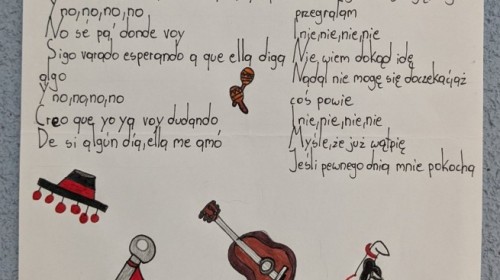 Y no, no, no, no
No sé pa' donde voy
Sigo varado esperando a que ella diga
algo
Y no, no, no, no
Creo que yo ya voy dudando
De si algún día, ella me amó
przegrałam
I nie, nie, nie, nie
Nie wiem dokąd idę
Nadal nie mogę się doczekać, aż
coś powie
I nie, nie, nie, nie
Myślę, że już wątpię
Jeśli pewnego dnia mnie pokocha